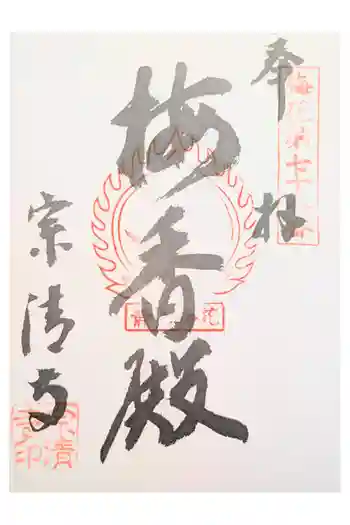 奉拝
梅香殿
宗清寺
宗清寺印